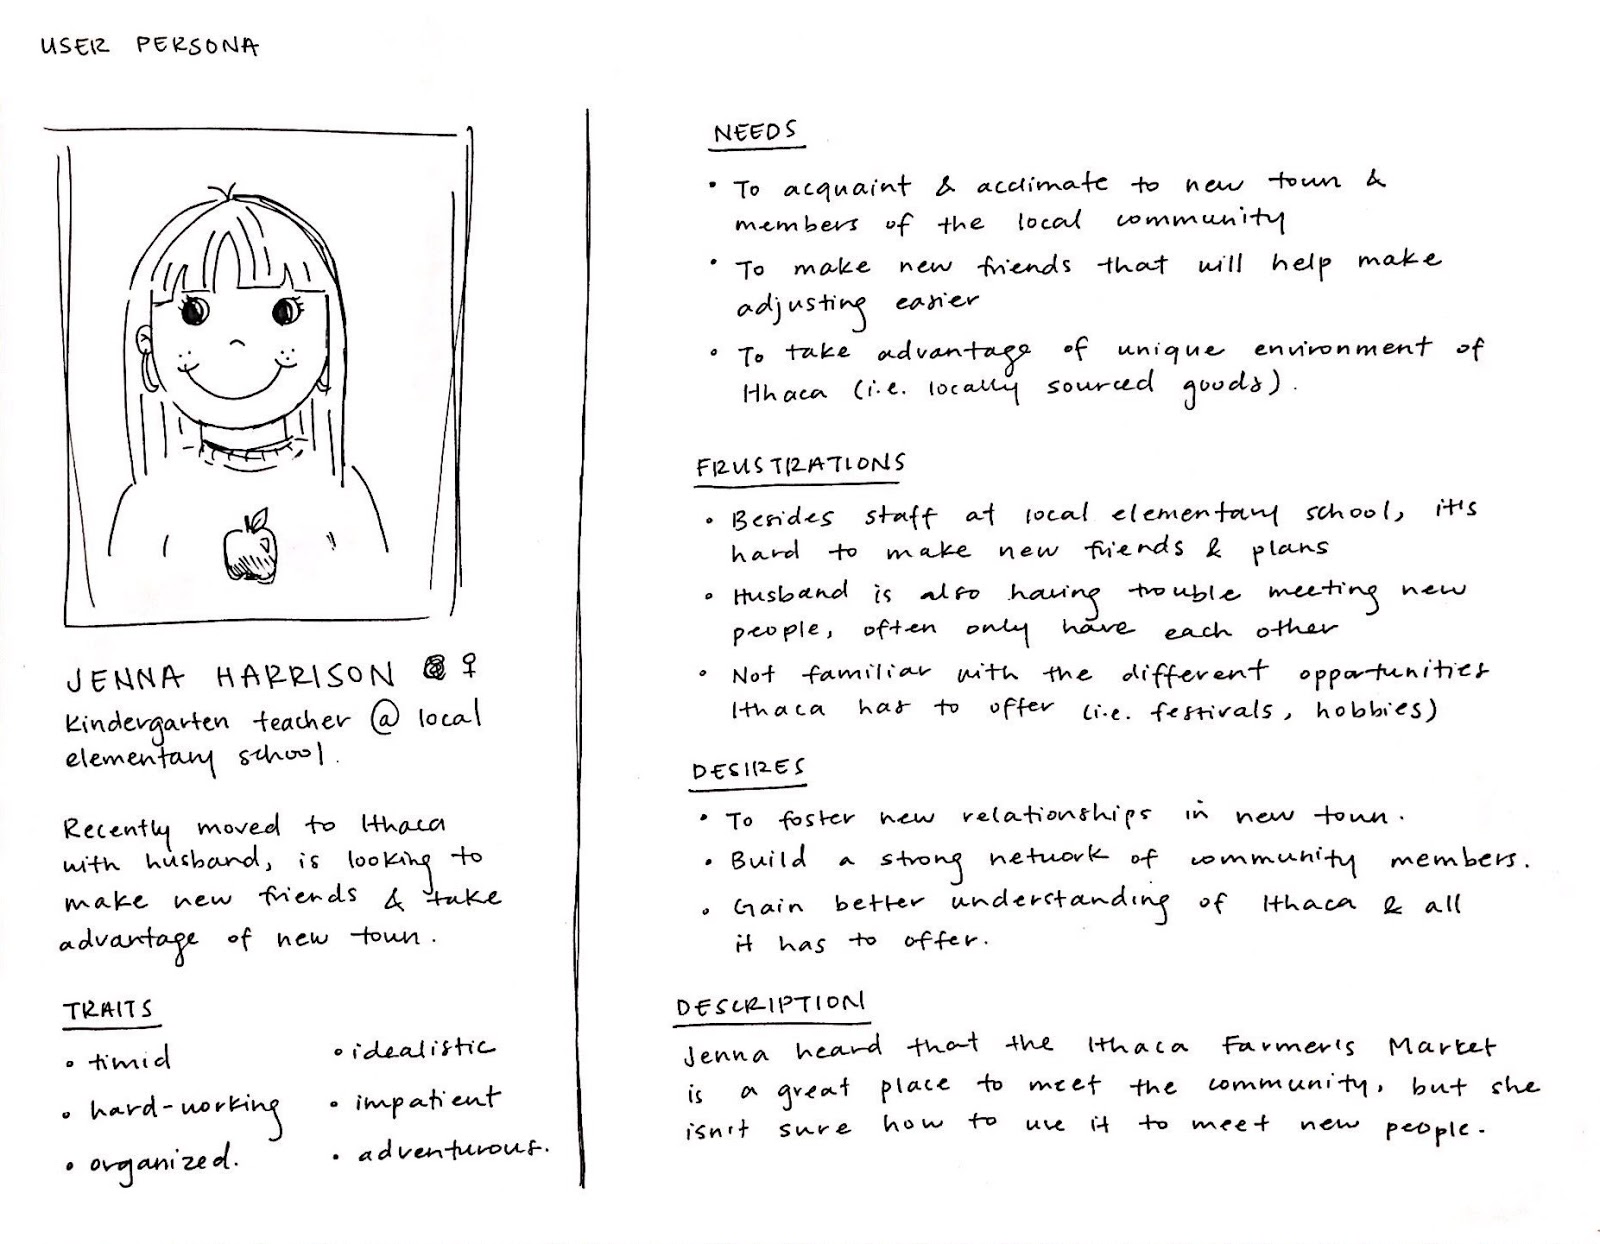 USER PERSONA
JENNA HARRISON ♀
Kindergarten teacher @ local
elementary school.
Recently moved to Ithaca
with husband, is looking to
make new friends & take
advantage of new town.
TRAITS
• timid
• hard-working
• organized.
• idealistic
• impatient
• adventurous.
NEEDS
• To acquaint & acclimate to new town &
members of the local community
• To make new friends that will help make
adjusting easier
• To take advantage of unique environment of
Ithaca (i.e. locally sourced goods).
FRUSTRATIONS
• Besides staff at local elementary school, it's
hard to make new friends & plans
• Husband is also having trouble meeting new
people, often only have each other
• Not familiar with the different opportunities
Ithaca has to offer (i.e. festivals, hobbies)
DESIRES
• To foster new relationships in new town.
• Build a strong network of community members.
• Gain better understanding of Ithaca & all
it has to offer.
DESCRIPTION
Jenna heard that the Ithaca Farmer's Market
is a great place to meet the community, but she
isn't sure how to use it to meet new people.